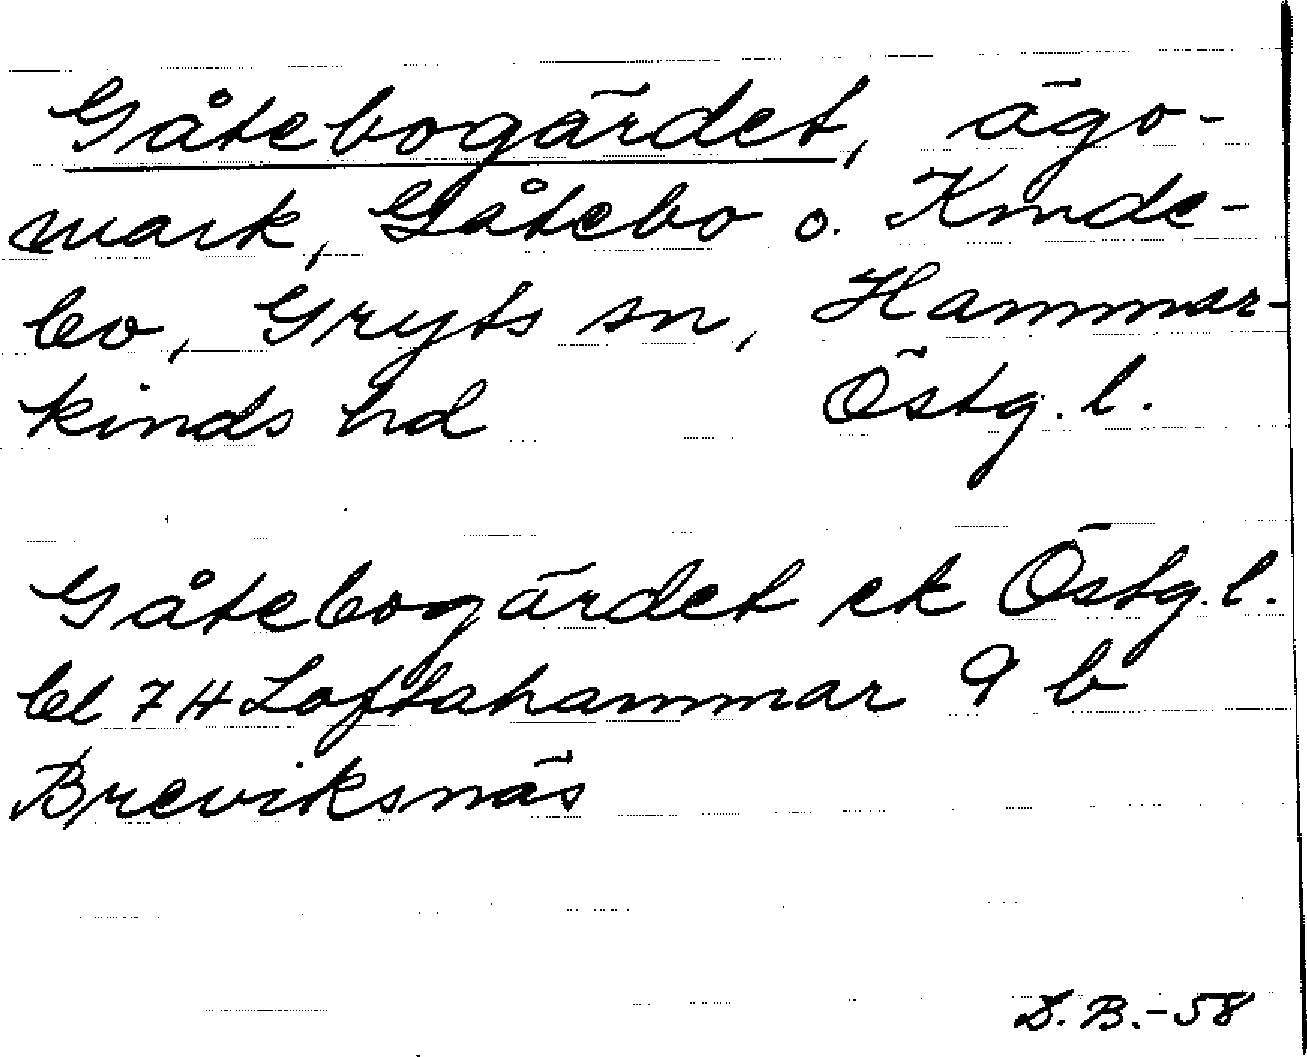 Gåtebogärdet, ägo-
mark, Gåtebo o. Kinde-
bo, Gryts sn, Hammar-
kinds hd Östg. l.
Gåtebogärdet ek Östg. l.
bl 7 H Loftahammar 9 b
Breviksnäs
D. B. - 58